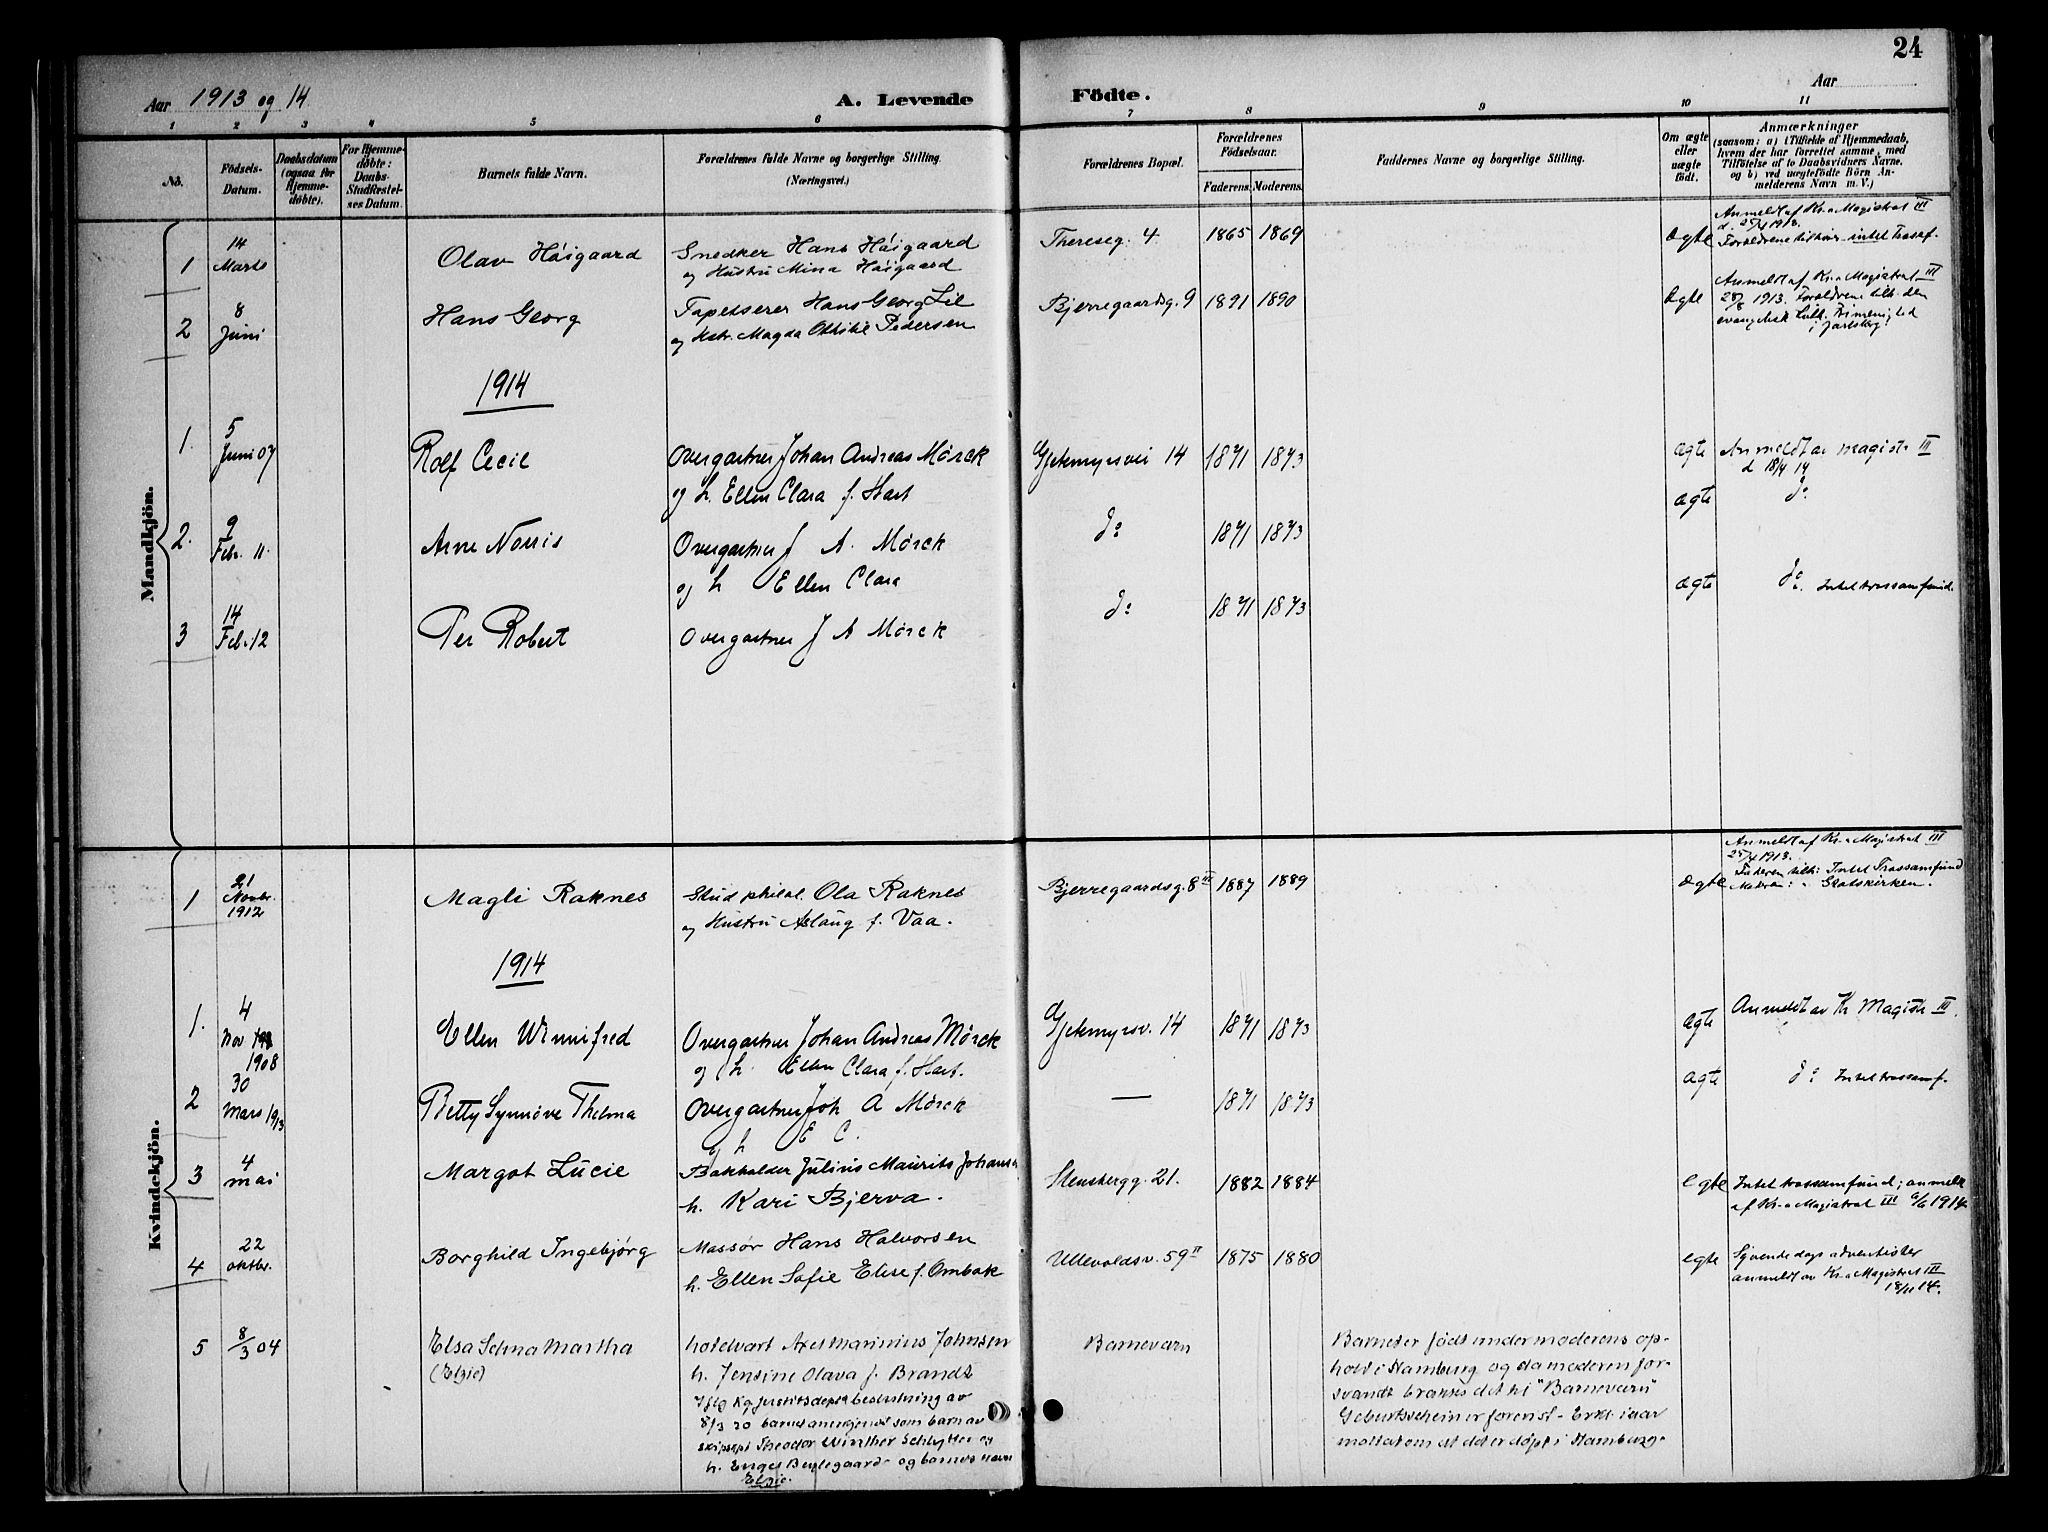 24
Aar 1913 og 14
A. Levende
Födte.
Aar
1 2 3 4 5 6 7 8 9 10 11
No.
Födsels-
Datum.
Daabsdatum
(ogsaa for
Hjemme-
døbte).
For Hjemme-
døbte:
Daabs-
Stadfæstel-
ses Datum.
Barnets fulde Navn.
Forældrenes fulde Navne og borgerlige Stilling.
(Næringsvei.)
Forældrenes Bopæl.
Forældrenes
Födselsaar.
Faderens. Moderens.
Faddernes Navne og borgerlige Stilling.
Om ægte
eller
uægte
födt.
Anmærkninger
(saasom: a) i Tilfælde af Hjemmedaab,
hvem der har forrettet samme, med
Tilföielse af to Daabsvidners Navne.
og b) ved uægtefödte Börn An-
melderens Navn m. V.)
Mandkjön.
1
14
Marts
Olav Höigaard
Snedker Hans Höigaard
og Hustru Mina Höigaard
Thereseg. 4
1865 1869
Ægte
Anmeldt af Kr.a Magistrat III
d. 25/4 1913.
Forældrene tilhører intet Trossf.
2
8
Juni
Hans Georg
Tapetserer Hans Georg Lie
og Hstr. Magda Othilie Pedersen
Bjerregaardsg. 9
1891 1890
Ægte
Anmeldt af Kr.a Magistrat III
28/8 1913. Forældrene tilh. den
evangelisk luth. Frimenighed
i Jarlsberg.
1914
1.
5
Juni 07
Rolf Cecil
Overgartner Johan Andreas Mørck
og h. Ellen Clara f. Hart
Gjetemyrsvei 14
1871 1873
ægte
Anmeldt av magistr III
d 18/4 14
2.
9
Feb. 11.
Arne Norris
Overgartner J A. Mørck
og h Ellen Clara
do
1871 1873
ægte
do
3
14
Feb. 12
Per Robert
Overgartner J A Mørck
do
1871 1873
ægte
do. Intet trossamfund.
Kvindekjön.
1
21
Novbr.
1912
Magli Raknes
Stud philol. Ola Raknes
og Hustru Aslaug f. Vaa.
Bjerregaardsg. 8 III
1887 1889
Ægte
Anmeldt af Kr.a Magistrat III
25/4 1913.
Faderen tilh: Intet Trossamfund
Moderen: " Statskirken.
1914
1.
4
Nov
1908
Ellen Winnifred
Overgartner Johan Andreas Mörck
og h. Ellen Clara f. Hart.
Gjetemyrsv. 14
1871 1873
ægte
Anmeldt av Kr Magistr III
2
30
Mars 1913
Betty Synnöve Thelma
Overgartner Joh A Mörck
og h E C.
—
1871 1873
ægte
do Intet trossamf.
3
4
mai
Margot Lucie
Bokholder Julius Maurits Johansen
h. Kari Bjerva.
Stensbergg. 21.
1882 1884
egte
Intet trossamfund; anmeldt
af Kr.a Magistrat III 6/6 1914.
4
22
oktbr.
Borghild Ingebjörg
Massør Hans Halvorsen
h. Ellen Sofie Elise f. Ombak
Ullevoldsv. 59 II
1875 1880
egte
Syvende dags adventister
anmeldt av Kr.a Magistrat III
18/11 14.
5
8/3 04
Elsa Selma Martha
(Elzie)
hotelvart Axel Marinius Johnsen
h. Jensine Olava f. Brandt
Iflg Kgl justitsdepts beslutning av
8/3 20 barnet anerkjendt som barn av
skipskpt Theodor Winther Schlytter og
h. Enger Bentegaard og barnets navn
Elzie.
Barnevarn
Barnet er født under moderens op-
hold i Hamburg og da moderen for-
svandt braktes det til "Barnevarn"
Geburtsschein er forevist. Erkl. i aar
mottat om at det er döpt i Hamburg.